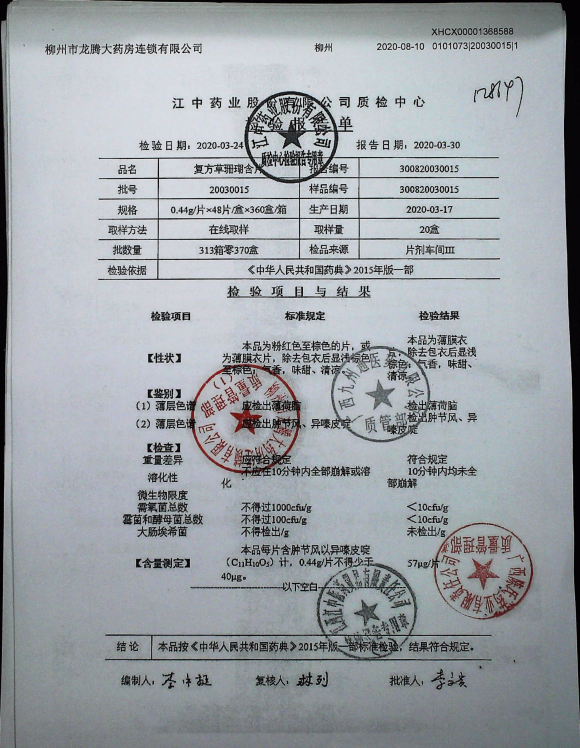 XHCX00001368588
柳州市龙腾大药房连锁有限公司 柳州 2020-08-10 0101073|20030015|1
江中药业股份有限公司质检中心
检验报告单
检验日期：2020-03-24 报告日期：2020-03-30
品名 复方草珊瑚含片 报告编号 300820030015
批号 20030015 样品编号 300820030015
规格 0.44g/片×48片/盒×360盒/箱 生产日期 2020-03-17
取样方法 在线取样 取样量 20盒
批数量 313箱零370盒 检品来源 片剂车间III
检验依据 《中华人民共和国药典》2015年版一部
检验项目与结果
检验项目 标准规定 检验结果
【性状】 本品为粉红色至棕色的片，或为薄膜衣片，除去包衣后显浅棕色至棕色；气香，味甜、清凉 本品为薄膜衣片，除去包衣后显浅棕色；气香，味甜、清凉
【鉴别】
（1）薄层色谱 应检出薄荷脑 检出薄荷脑
（2）薄层色谱 应检出肿节风、异嗪皮啶 检出肿节风、异嗪皮啶
【检查】
重量差异 应符合规定 符合规定
溶化性 不应在10分钟内全部崩解或溶化 10分钟内均未全部崩解
微生物限度
需氧菌总数 不得过1000cfu/g ＜10cfu/g
霉菌和酵母菌总数 不得过100cfu/g ＜10cfu/g
大肠埃希菌 不得检出/g 未检出/g
【含量测定】 本品每片含肿节风以异嗪皮啶（C₁₁H₁₀O₅）计，0.44g/片不得少于40μg。 57μg/片
以下空白
结论 本品按《中华人民共和国药典》2015年版一部标准检验，结果符合规定。
编制人： 复核人： 批准人：
质管部
质量管理部